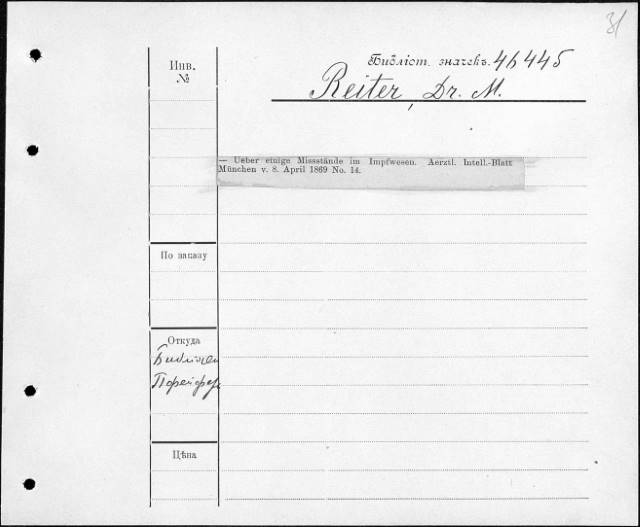 31
Инв.
№
Библіот. значекъ. 46445
Reiter, Dr. M.
— Ueber einige Missstände im Impfwesen. Aerztl. Intell.-Blatt
München v. 8. April 1869 No. 14.
По заказу
Откуда
Цѣна